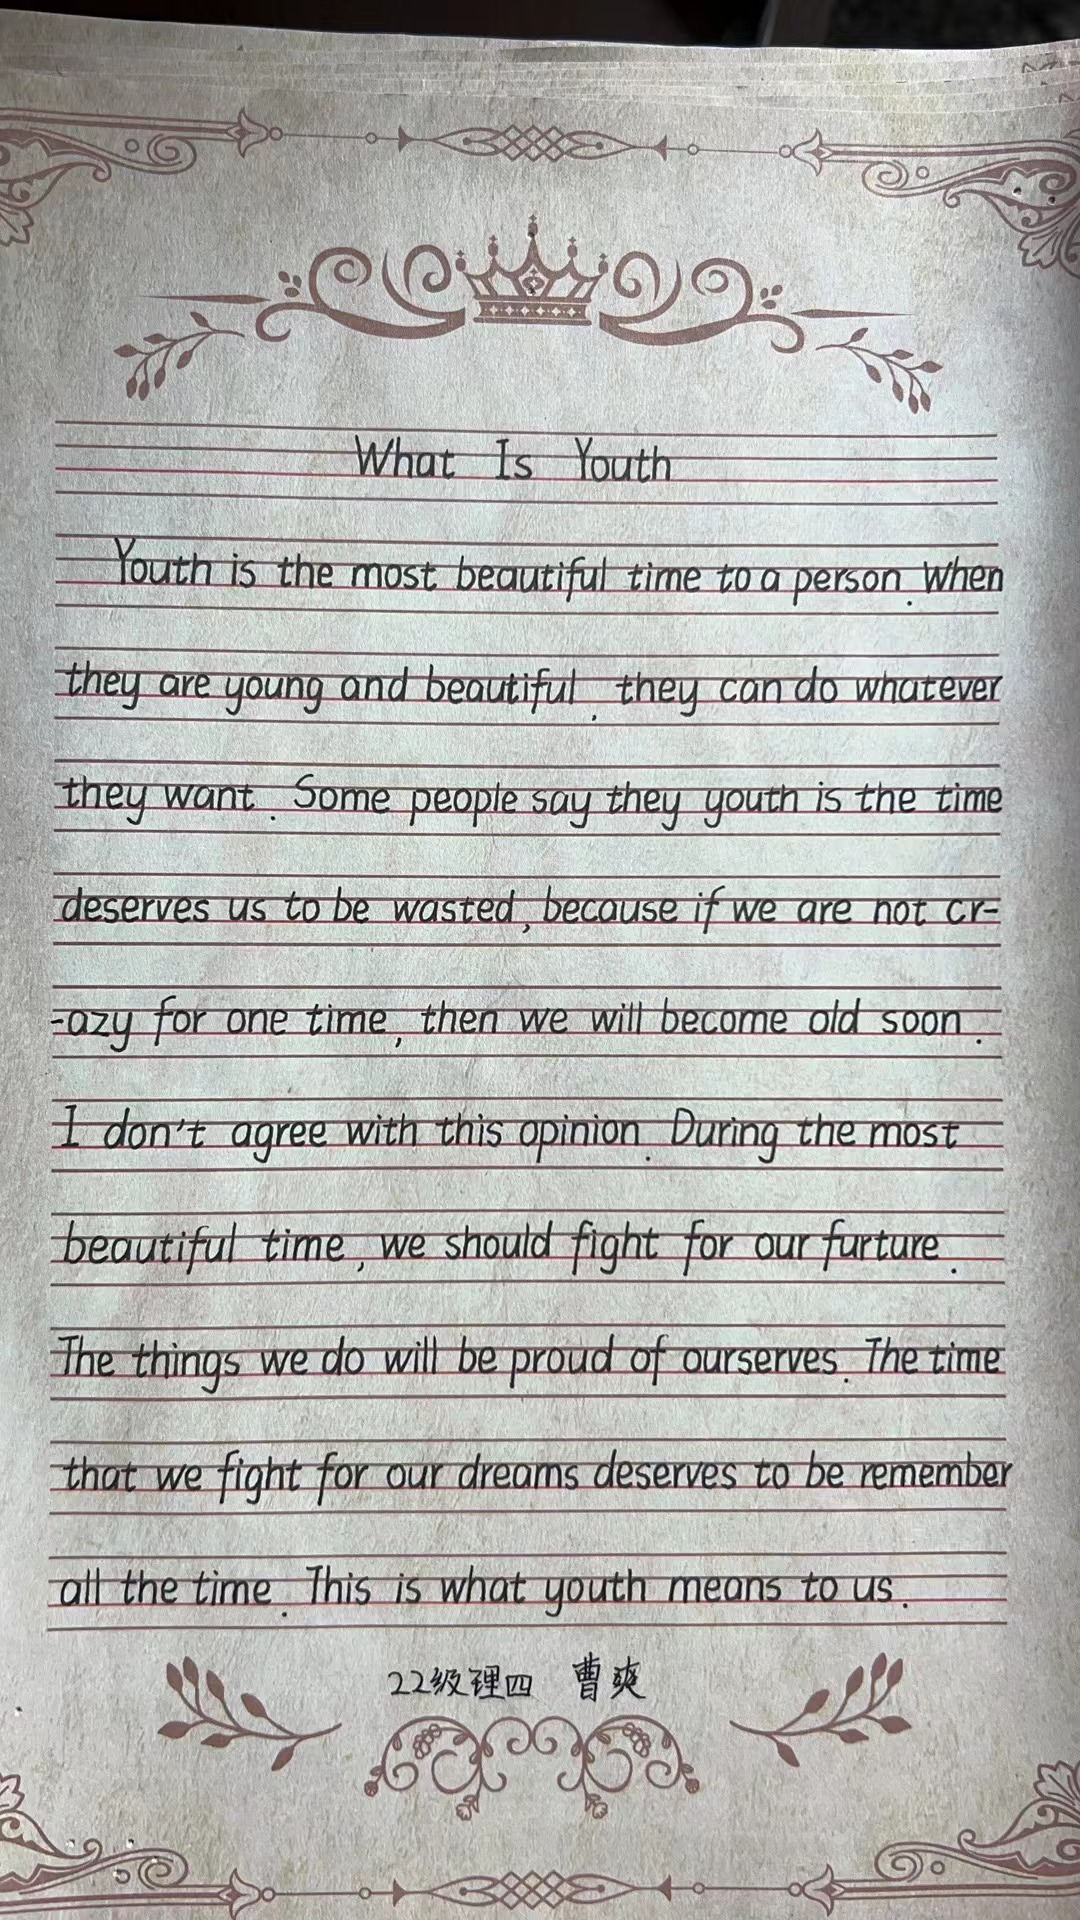 What Is Youth
Youth is the most beautiful time to a person. When
they are young and beautiful, they can do whatever
they want. Some people say they youth is the time
deserves us to be wasted, because if we are not cr-
-azy for one time, then we will become old soon.
I don't agree with this opinion. During the most
beautiful time, we should fight for our furture.
The things we do will be proud of ourserves. The time
that we fight for our dreams deserves to be remember
all the time. This is what youth means to us.
22级理四 曹爽